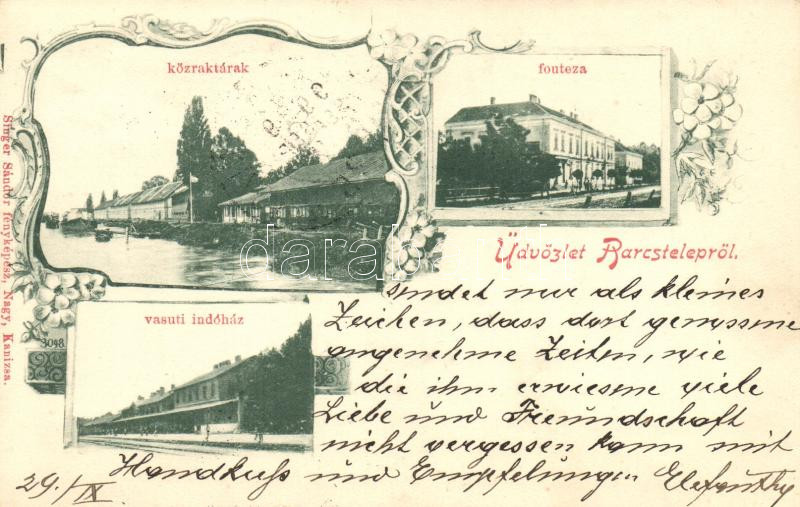 közraktárak
fouteza
Üdvözlet Barcstelepről.
vasuti indóház
3048
Singer Sándor fényképész, Nagy, Kanizsa.
darabanth
sendet nur als kleines
Zeichen, dass dort genossene
angenehme Zeiten, wie
die ihm erwiesene viele
Liebe und Freundschaft
nicht vergessen kann mit
Handkuss und Empfelungen
29./IX